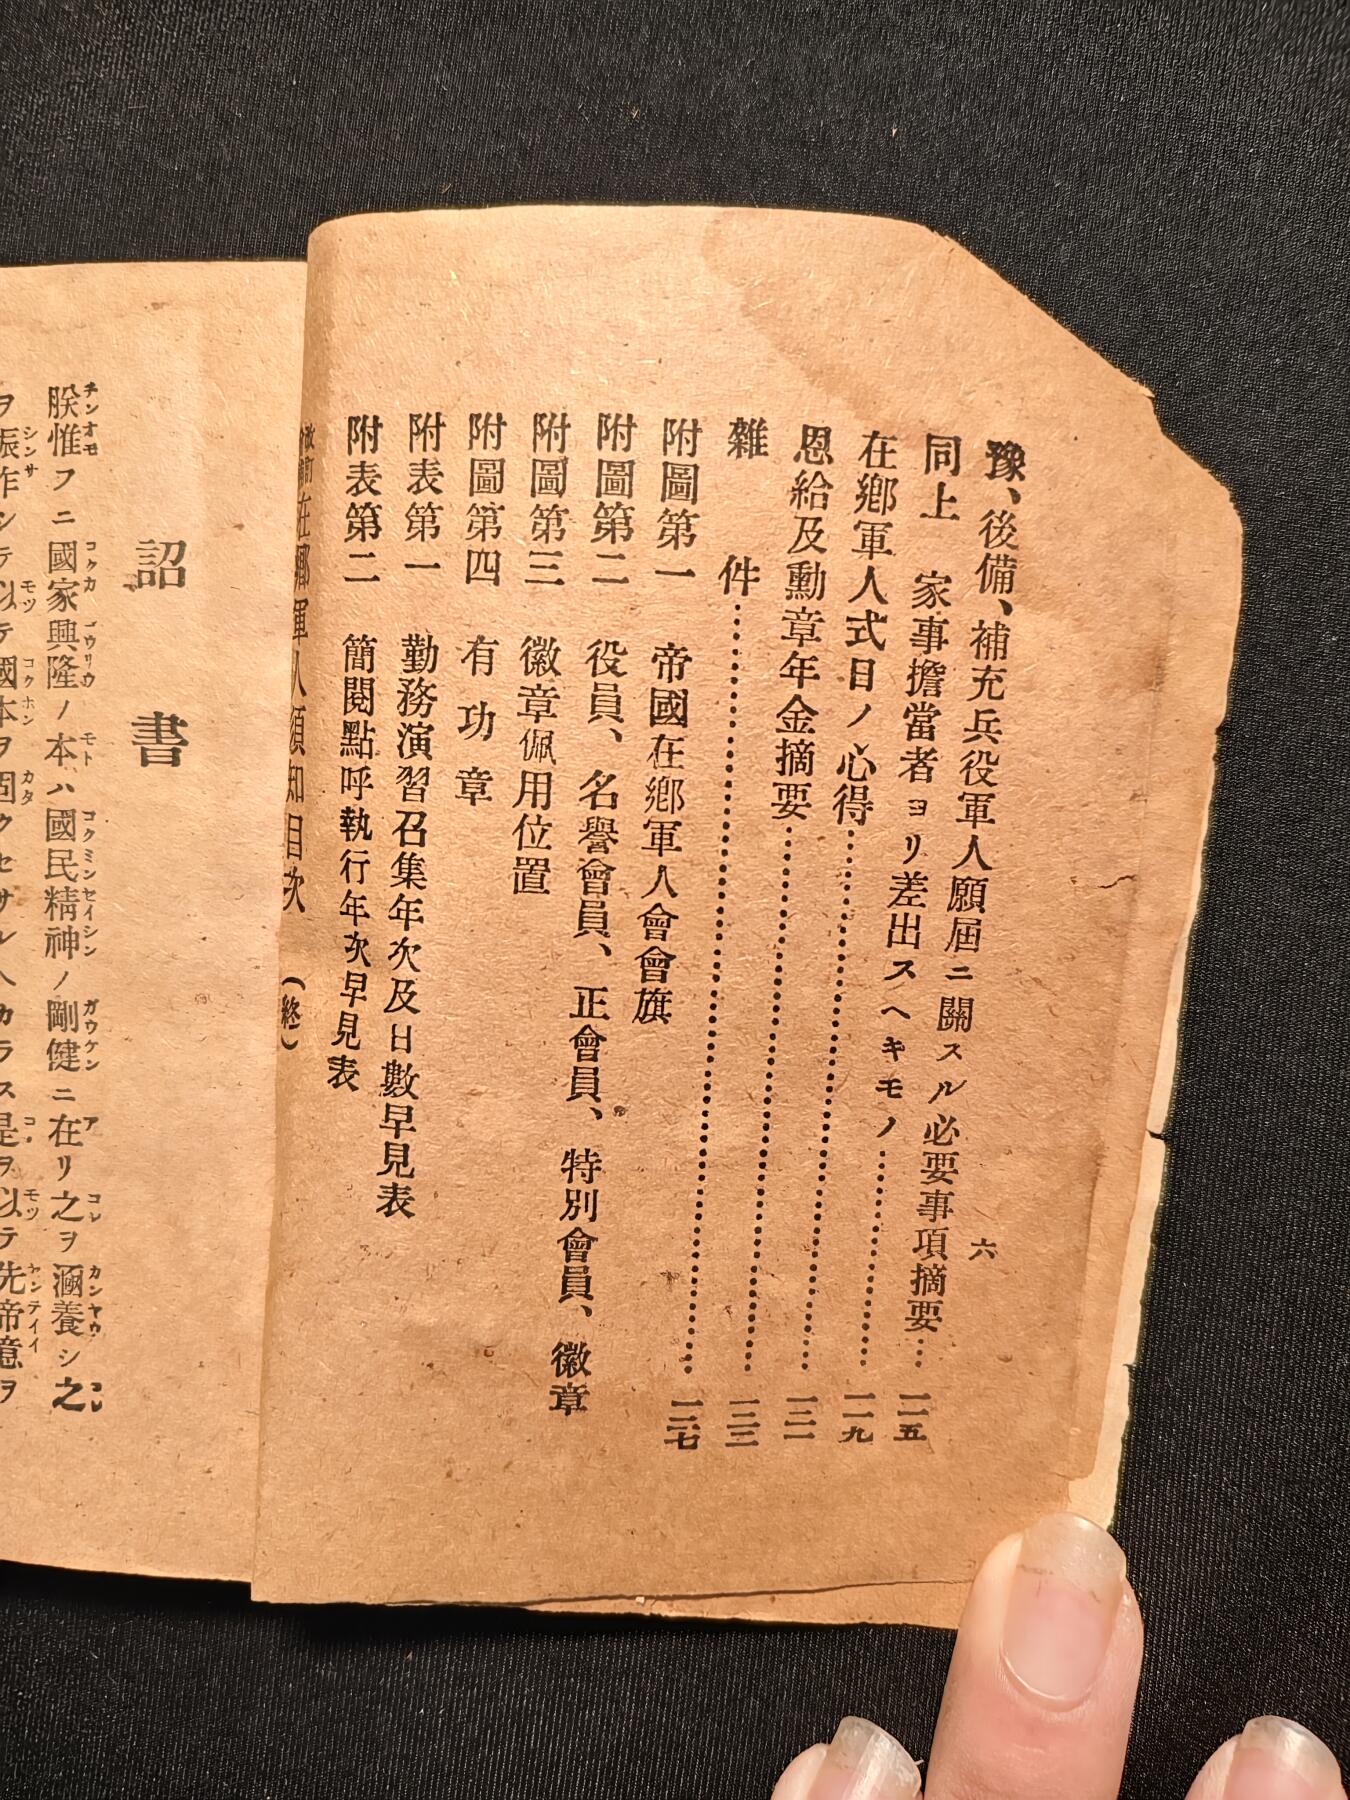 六
豫、後備、補充兵役軍人願屆ニ關スル必要事項摘要……一一五
同上　家事擔當者ヨリ差出スヘキモノ……一二九
在鄕軍人式日ノ心得……一三一
恩給及勳章年金摘要……一三三
雜件……一三七
附圖第一　帝國在鄕軍人會會旗
附圖第二　役員、名譽會員、正會員、特別會員、徽章
附圖第三　徽章佩用位置
附圖第四　有功章
附表第一　勤務演習召集年次及日數早見表
附表第二　簡閱點呼執行年次早見表
在鄕軍人須知目次　(終)
詔書
朕惟フニ國家興隆ノ本ハ國民精神ノ剛健ニ在リ之ヲ涵養シ之
ヲ振作シテ以テ國本ヲ固クセサルヘカラス是ヲ以テ先帝意ヲ